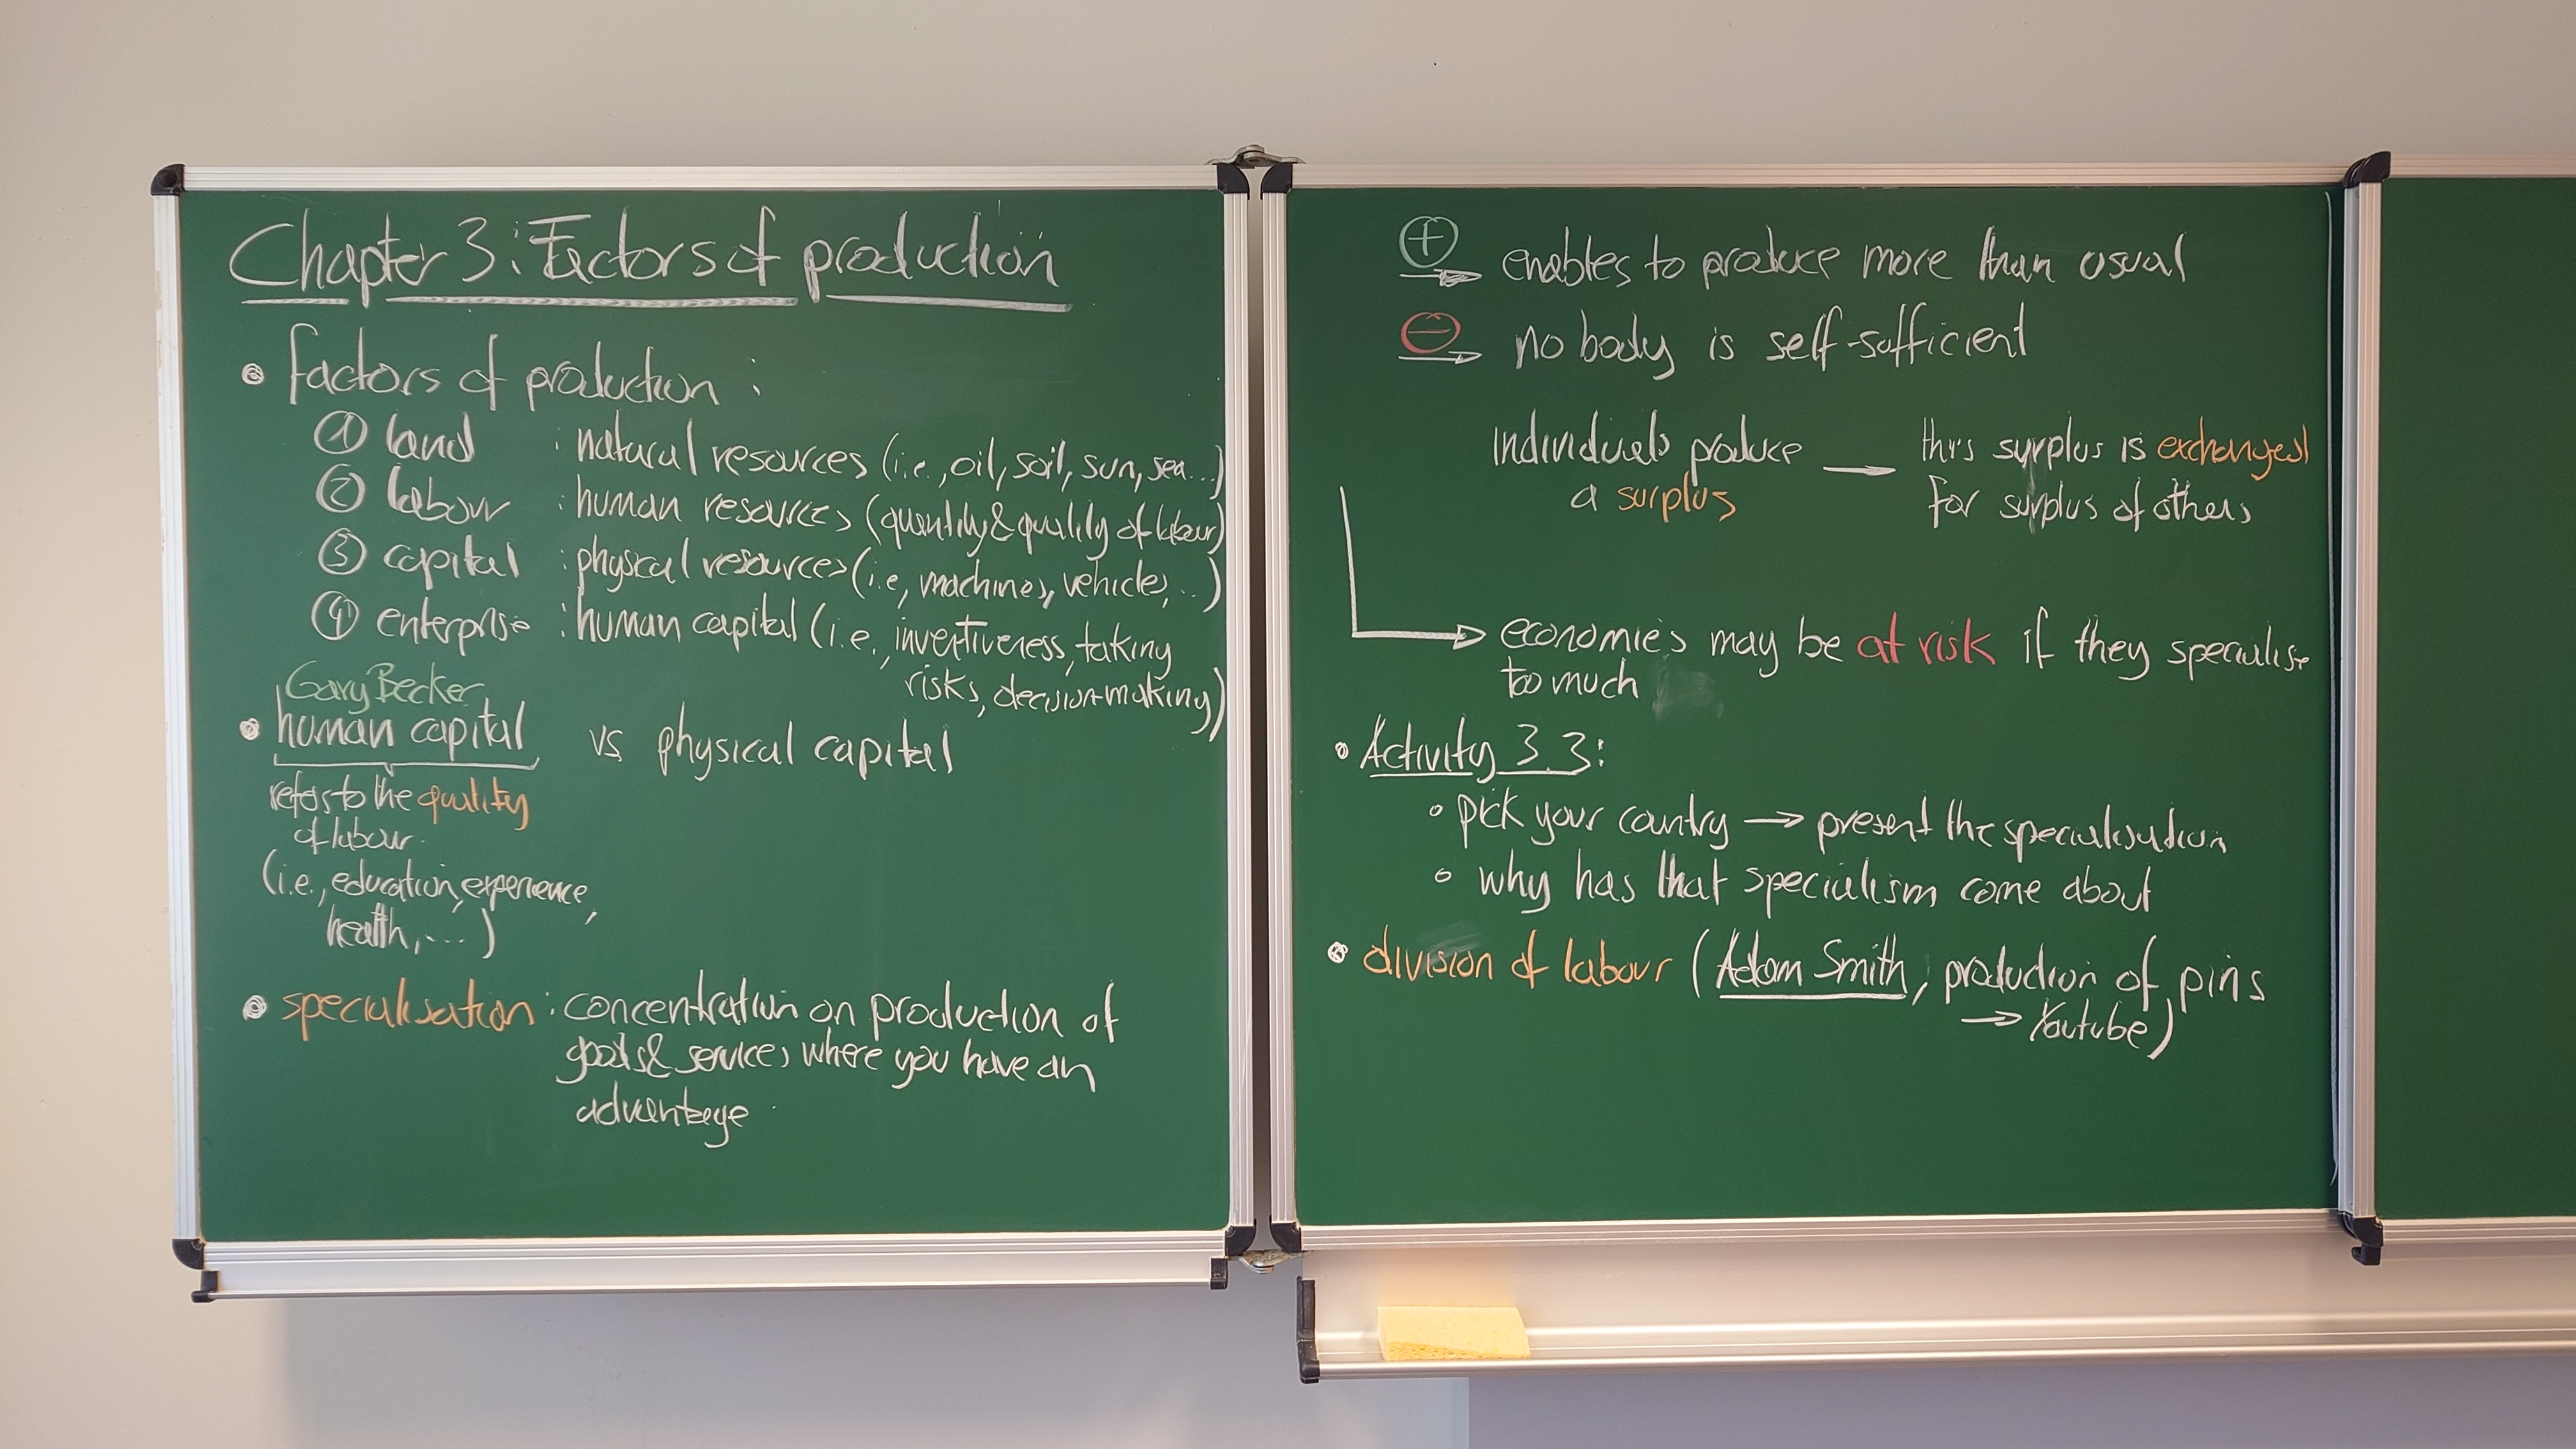 Chapter 3: Factors of production
factors of production :
① land : natural resources (i.e., oil, soil, sun, sea...)
② labour : human resources (quantity & quality of labour)
③ capital : physical resources (i.e, machines, vehicles, ...)
④ enterprise : human capital (i.e., inventiveness, taking
risks, decision-making)
Gary Becker
human capital vs physical capital
refers to the quality
of labour.
(i.e., education, experience,
health, ...)
specialisation : concentration on production of
goods & services where you have an
advantage
⊕ → enables to produce more than usual
⊖ → no body is self-sufficient
individuals produce → this surplus is exchanged
a surplus for surplus of others
→ economies may be at risk if they specialise
too much
Activity 3.3:
pick your country → present the specialisation
why has that specialism come about
division of labour (Adam Smith, production of pins
→ Youtube)